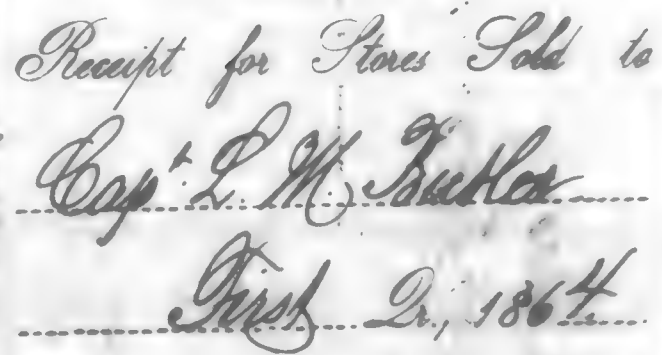 Receipt for Stores Sold to
Capt L. M. Butler
First Qr., 1864